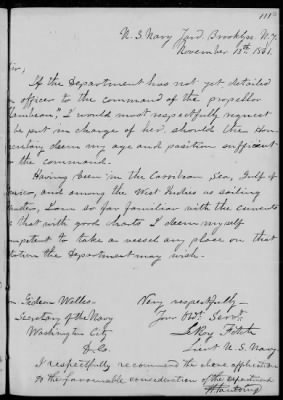 111
U. S. Navy Yard, Brooklyn N. Y.
November 13th 1861.
Sir,
If the Department has not yet detailed
an officer to the command of the propellor
I would most respectfully request
be put in charge of her, should the Hon
Secretary deem my age and position sufficient
for the command.
Having been in the Carribean Sea, Gulf of
Mexico, and among the West Indies as sailing
Master, I am so far familiar with the currents
that with good charts I deem myself
competent to take a vessel any place on that
station the Department may wish.
Hon Gideon Welles
Secretary of the Navy
Washington City
D. C.
Very respectfully
Your Obdt. Servt.
LeRoy Fitch
Lieut U. S. Navy
I respectfully recommend the above application
to the favourable consideration of the department